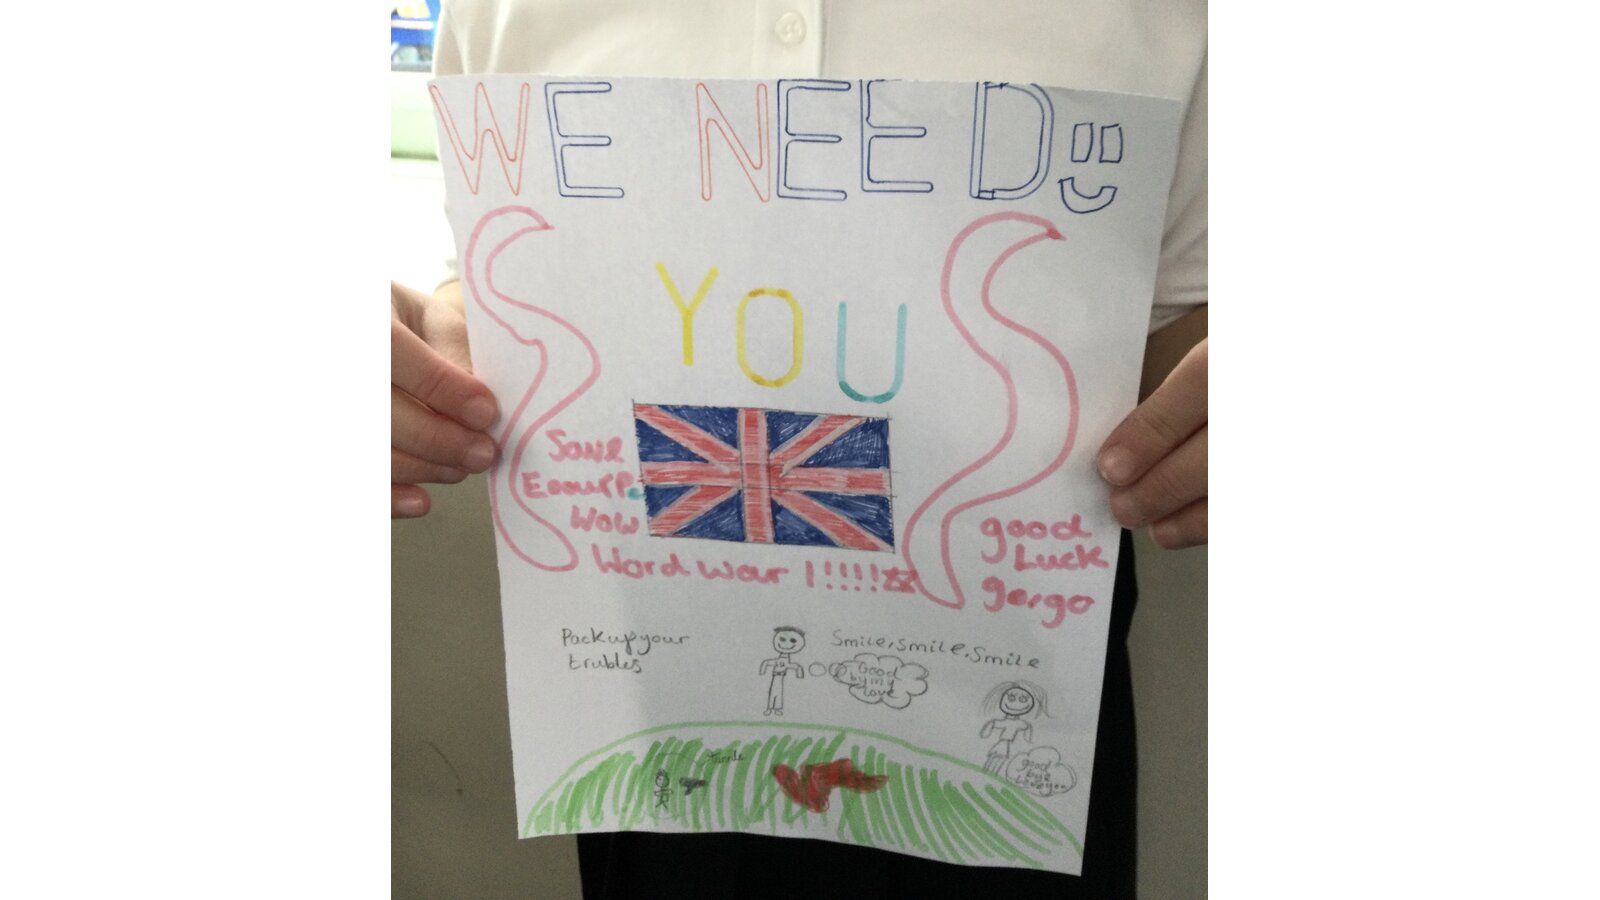 WE NEED
YOU
Save
Eourp
Wow
Word war 1!!!!
good
Luck
gorgo
Pack up your
trubles
Smile, smile, Smile
Good
by my
love
good
bye
love you